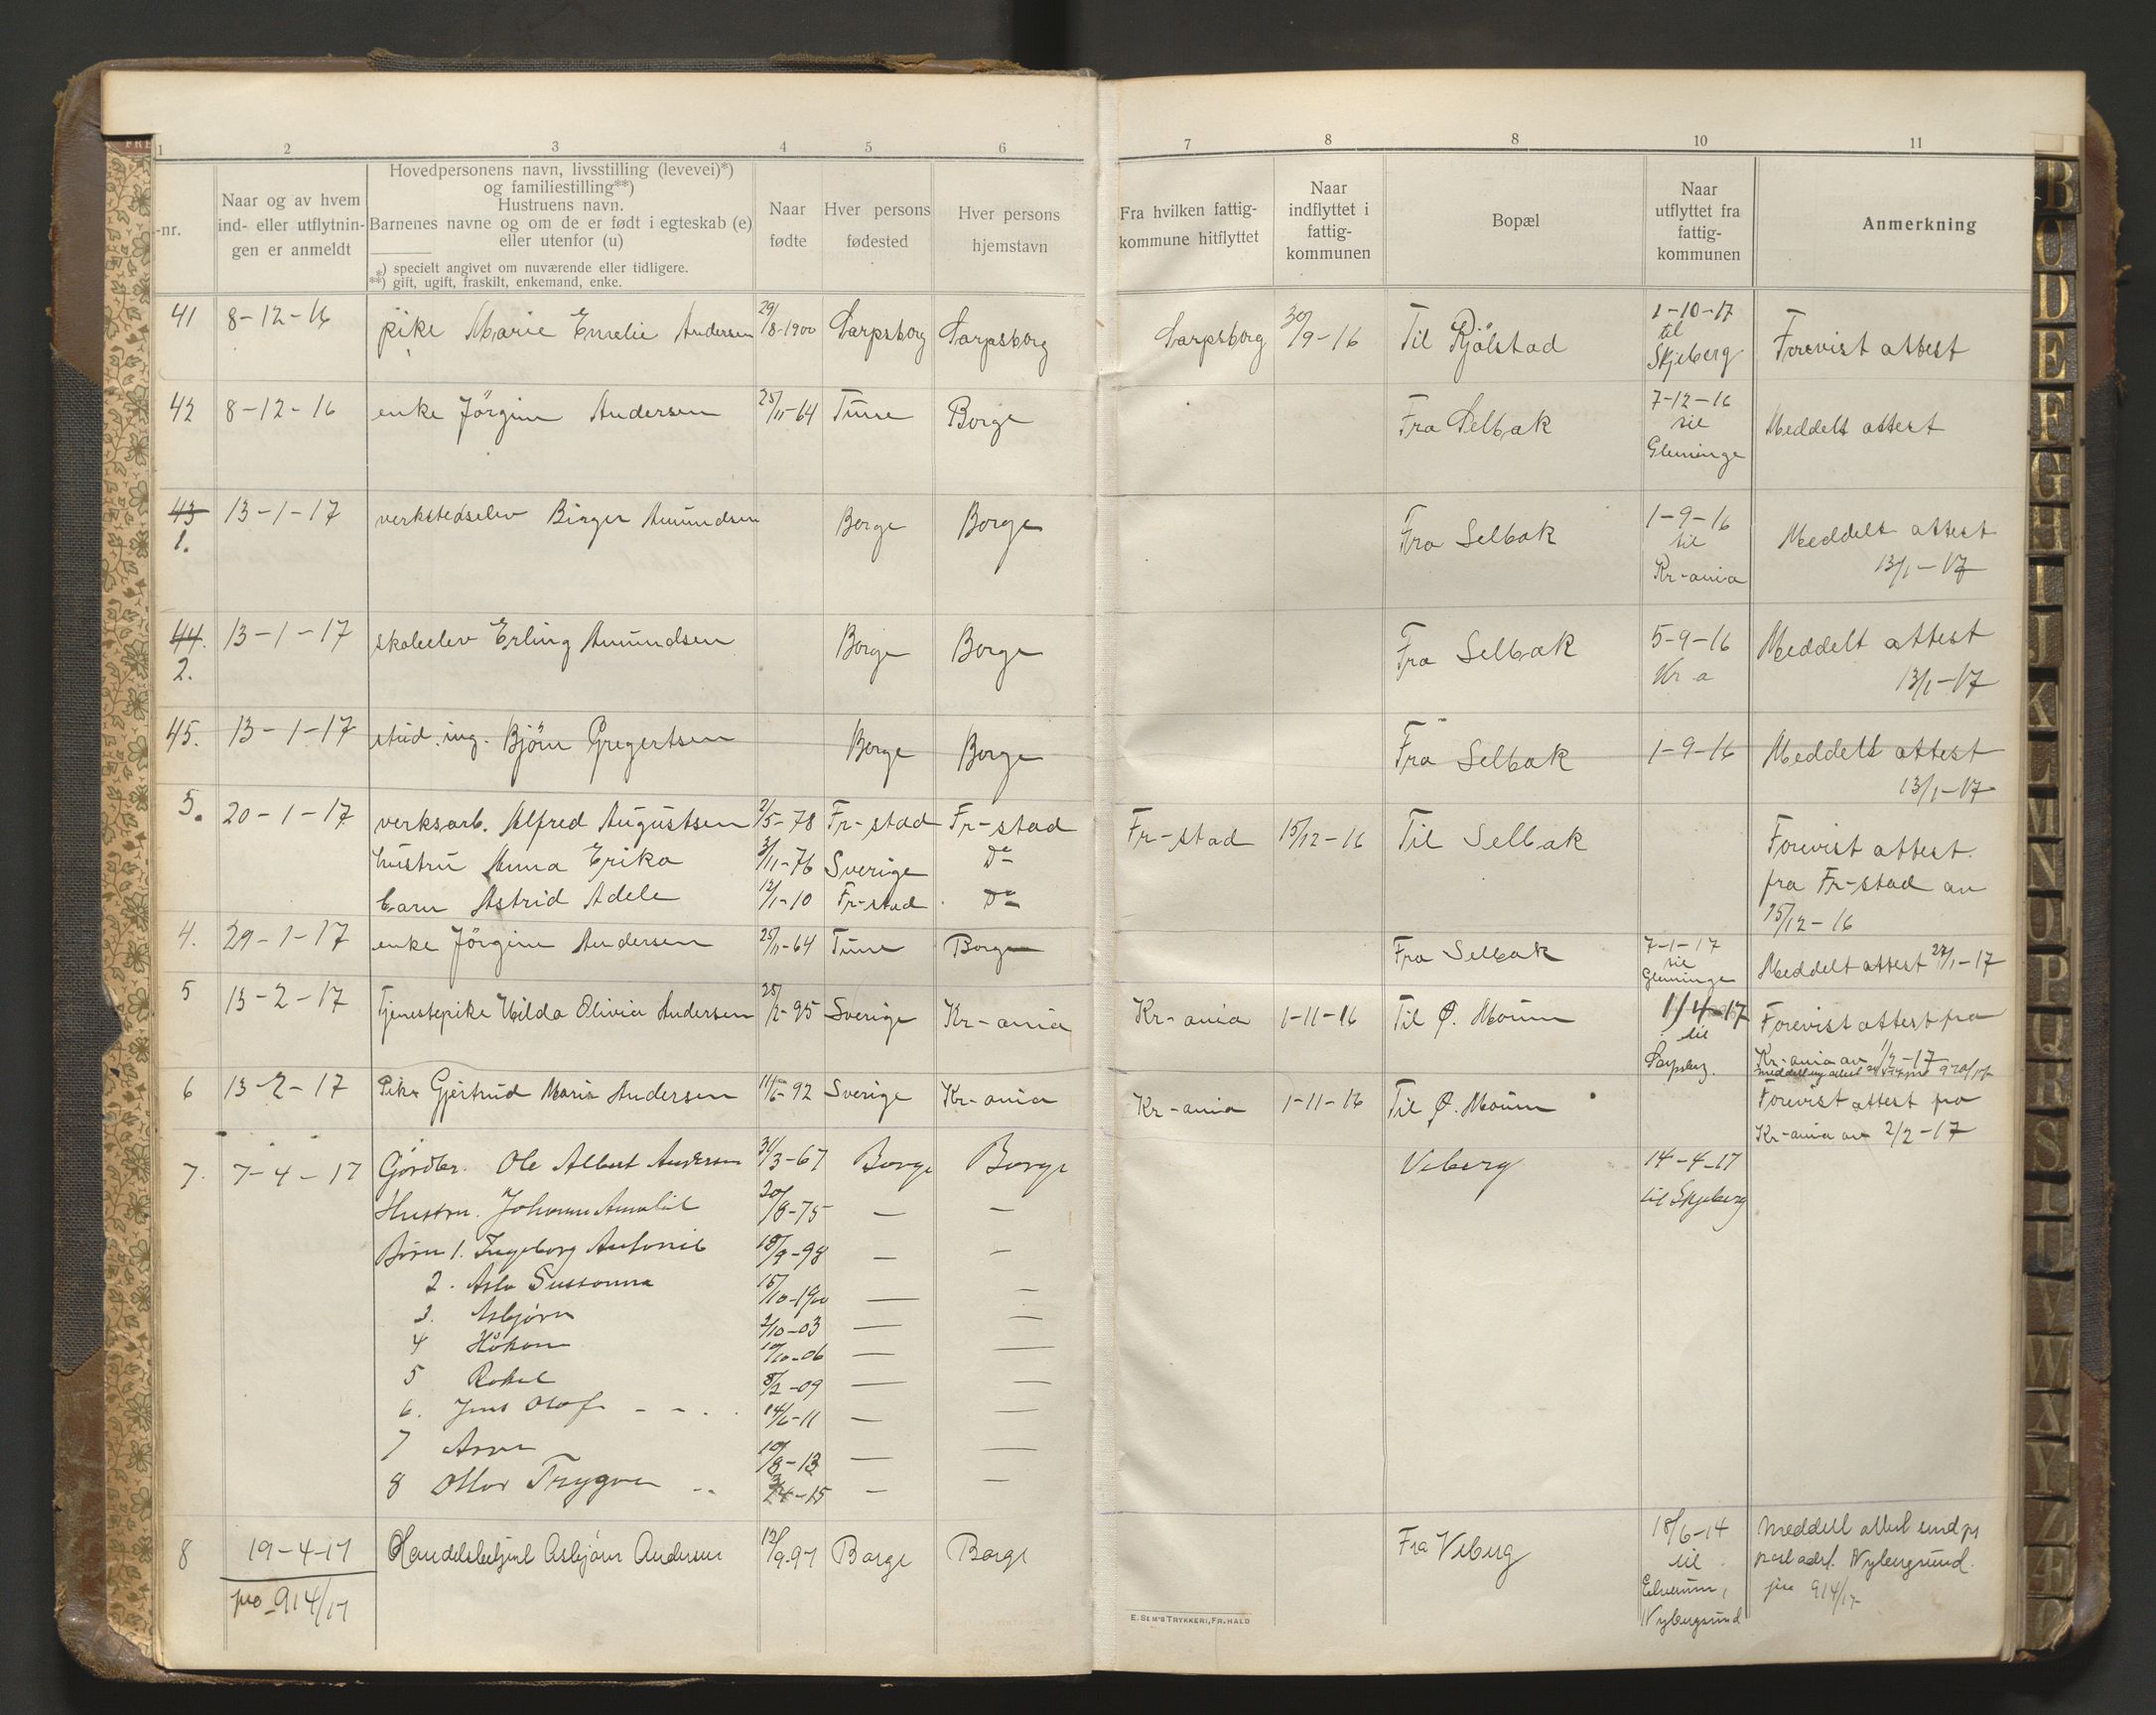 1 2 3 4 5 6 7 8 8 10 11
-nr.
Naar og av hvem
ind- eller utflytnin-
gen er anmeldt
Hovedpersonens navn, livsstilling (levevei)*)
og familiestilling**)
Hustruens navn.
Barnenes navne og om de er født i egteskab (e)
eller utenfor (u)
*) specielt angivet om nuværende eller tidligere.
**) gift, ugift, fraskilt, enkemand, enke.
Naar
fødte
Hver persons
fødested
Hver persons
hjemstavn
Fra hvilken fattig-
kommune hitflyttet
Naar
indflyttet i
fattig-
kommunen
Bopæl
Naar
utflyttet fra
fattig-
kommunen
Anmerkning
41 8-12-16 pike Marie Emelie Andersen 29/8-1900 Sarpsborg Sarpsborg Sarpsborg 30/9-16 Til Kjölstad 1-10-17
til
Skjeberg
Forevist attest
42 8-12-16 enke Jörgine Andersen 25/11-64 Tune Borge Fra Selbak 7-12-16
til
Glemminge
Meddelt attest
43
1.
13-1-17 verkstedselev Birger Amundsen Borge Borge Fra Selbak 1-9-16
til
Kr-ania
Meddelt attest
13/1-17
44.
2.
13-1-17 skoleelev Erling Amundsen Borge Borge Fra Selbak 5-9-16
Kr a
Meddelt attest
13/1-17
45. 13-1-17 stud. ing. Björn Gregertsen Borge Borge Fra Selbak 1-9-16 Meddelt attest
13/1-17
3. 20-1-17 verksarb. Alfred Augustsen 2/5-78 Fr-stad Fr-stad Fr-stad 15/12-16 Til Selbak Forevist attest
hustru Anna Erika 3/11-76 Sverige Do fra Fr-stad av
barn Astrid Adele 12/1-10 Fr-stad Do 15/12-16
4. 29-1-17 enke Jörgine Andersen 25/11-64 Tune Borge Fra Selbak 7-1-17
til
Glemminge
Meddelt attest 27/1-17
5 13-2-17 Tjenestepike Hilda Olivia Andersen 25/2-95 Sverige Kr-ania Kr-ania 1-11-16 Til Ø. Moum 1/4-17
til
Sarpsborg.
Forevist attest fra
Kr-ania av 1/2-17
6 13-2-17 Pike Gjertrud Marie Andersen 11/6-92 Sverige Kr-ania Kr-ania 1-11-16 Til Ø. Moum Forevist attest fra
Kr-ania av 2/2-17
7. 7-4-17 Gårdbr. Ole Albert Andersen 31/3-67 Borge Borge Viberg 14-4-17
til Skjeberg
Hustru. Johanne Amalie 20/8-75 — —
Børn 1. Ingeborg Antonie 18/9-98 — —
2. Asla Sussanna 15/10-1900 — —
3. Asbjørn 2/10-03 — —
4 Håkon 10/10-06 — —
5 Rakel 8/2-09 — —
6. Jens Olaf 14/6-11 — —
7 Arne 10/8-13 — —
8 Ottar Trygve 4-15 — —
8 19-4-17 Handelsbetjent Asbjørn Andersen 12/9-97 Borge Borge Fra Viberg 18/6-14
til
Elverum,
Nybergsund
pro 914/17
Meddelt attest send pr
post adr. Nybergsund.
jno 914/17
E. SEM'S TRYKKERI, FR.HALD
B C D E F G H I J K L M N O P Q R S T U V W X Y Z Æ Ø